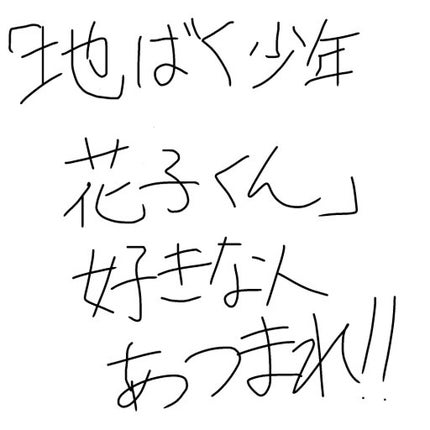 「地ばく少年
花子くん」
好きな人
あつまれ!!